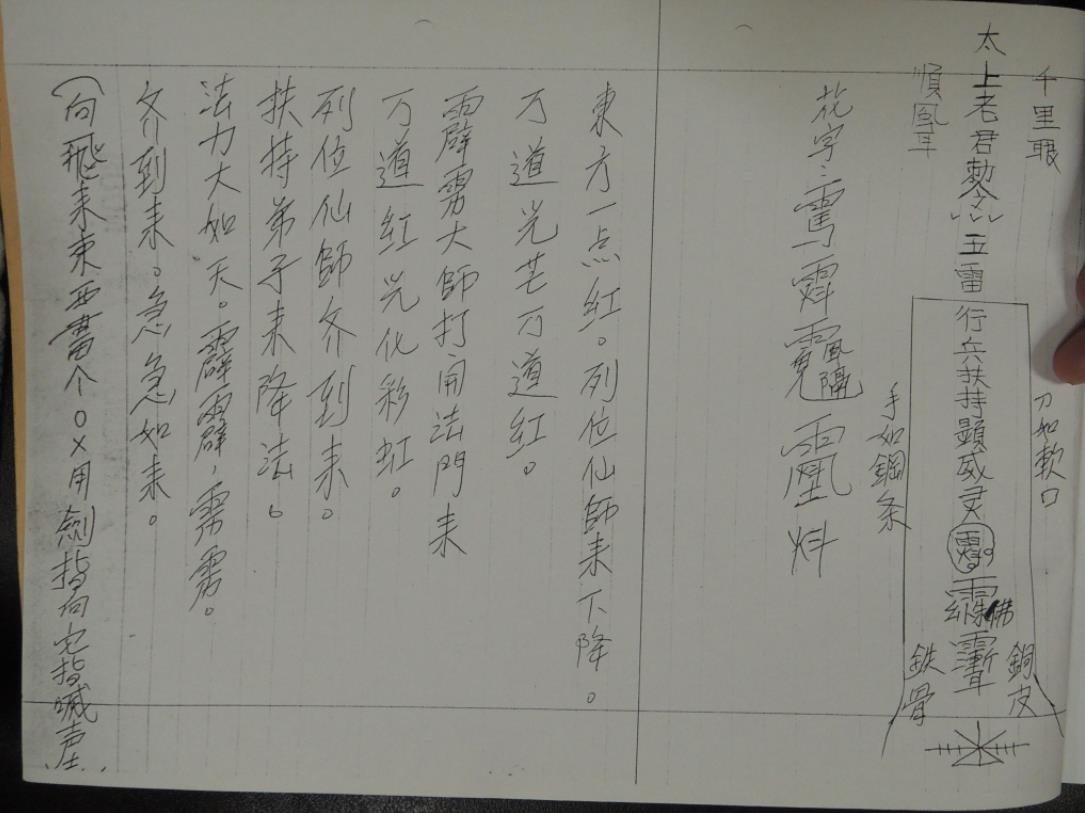 千里眼
太上老君敕令 五雷行兵扶持顯威灵
順風耳
刀如軟口
手如鋼条
銅皮
鉄骨
花字:
東方一点紅。列位仙師耒下降。
万道光芒万道紅。
霹雳大師打開法門耒
万道紅光化彩虹。
列位仙師齐到耒。
扶持弟子耒降法。
法力大如天。霹靂霹,雳雳。
齐到耒。急急如耒。
(向飛耒東西畫个O×用劍指向它指喊声